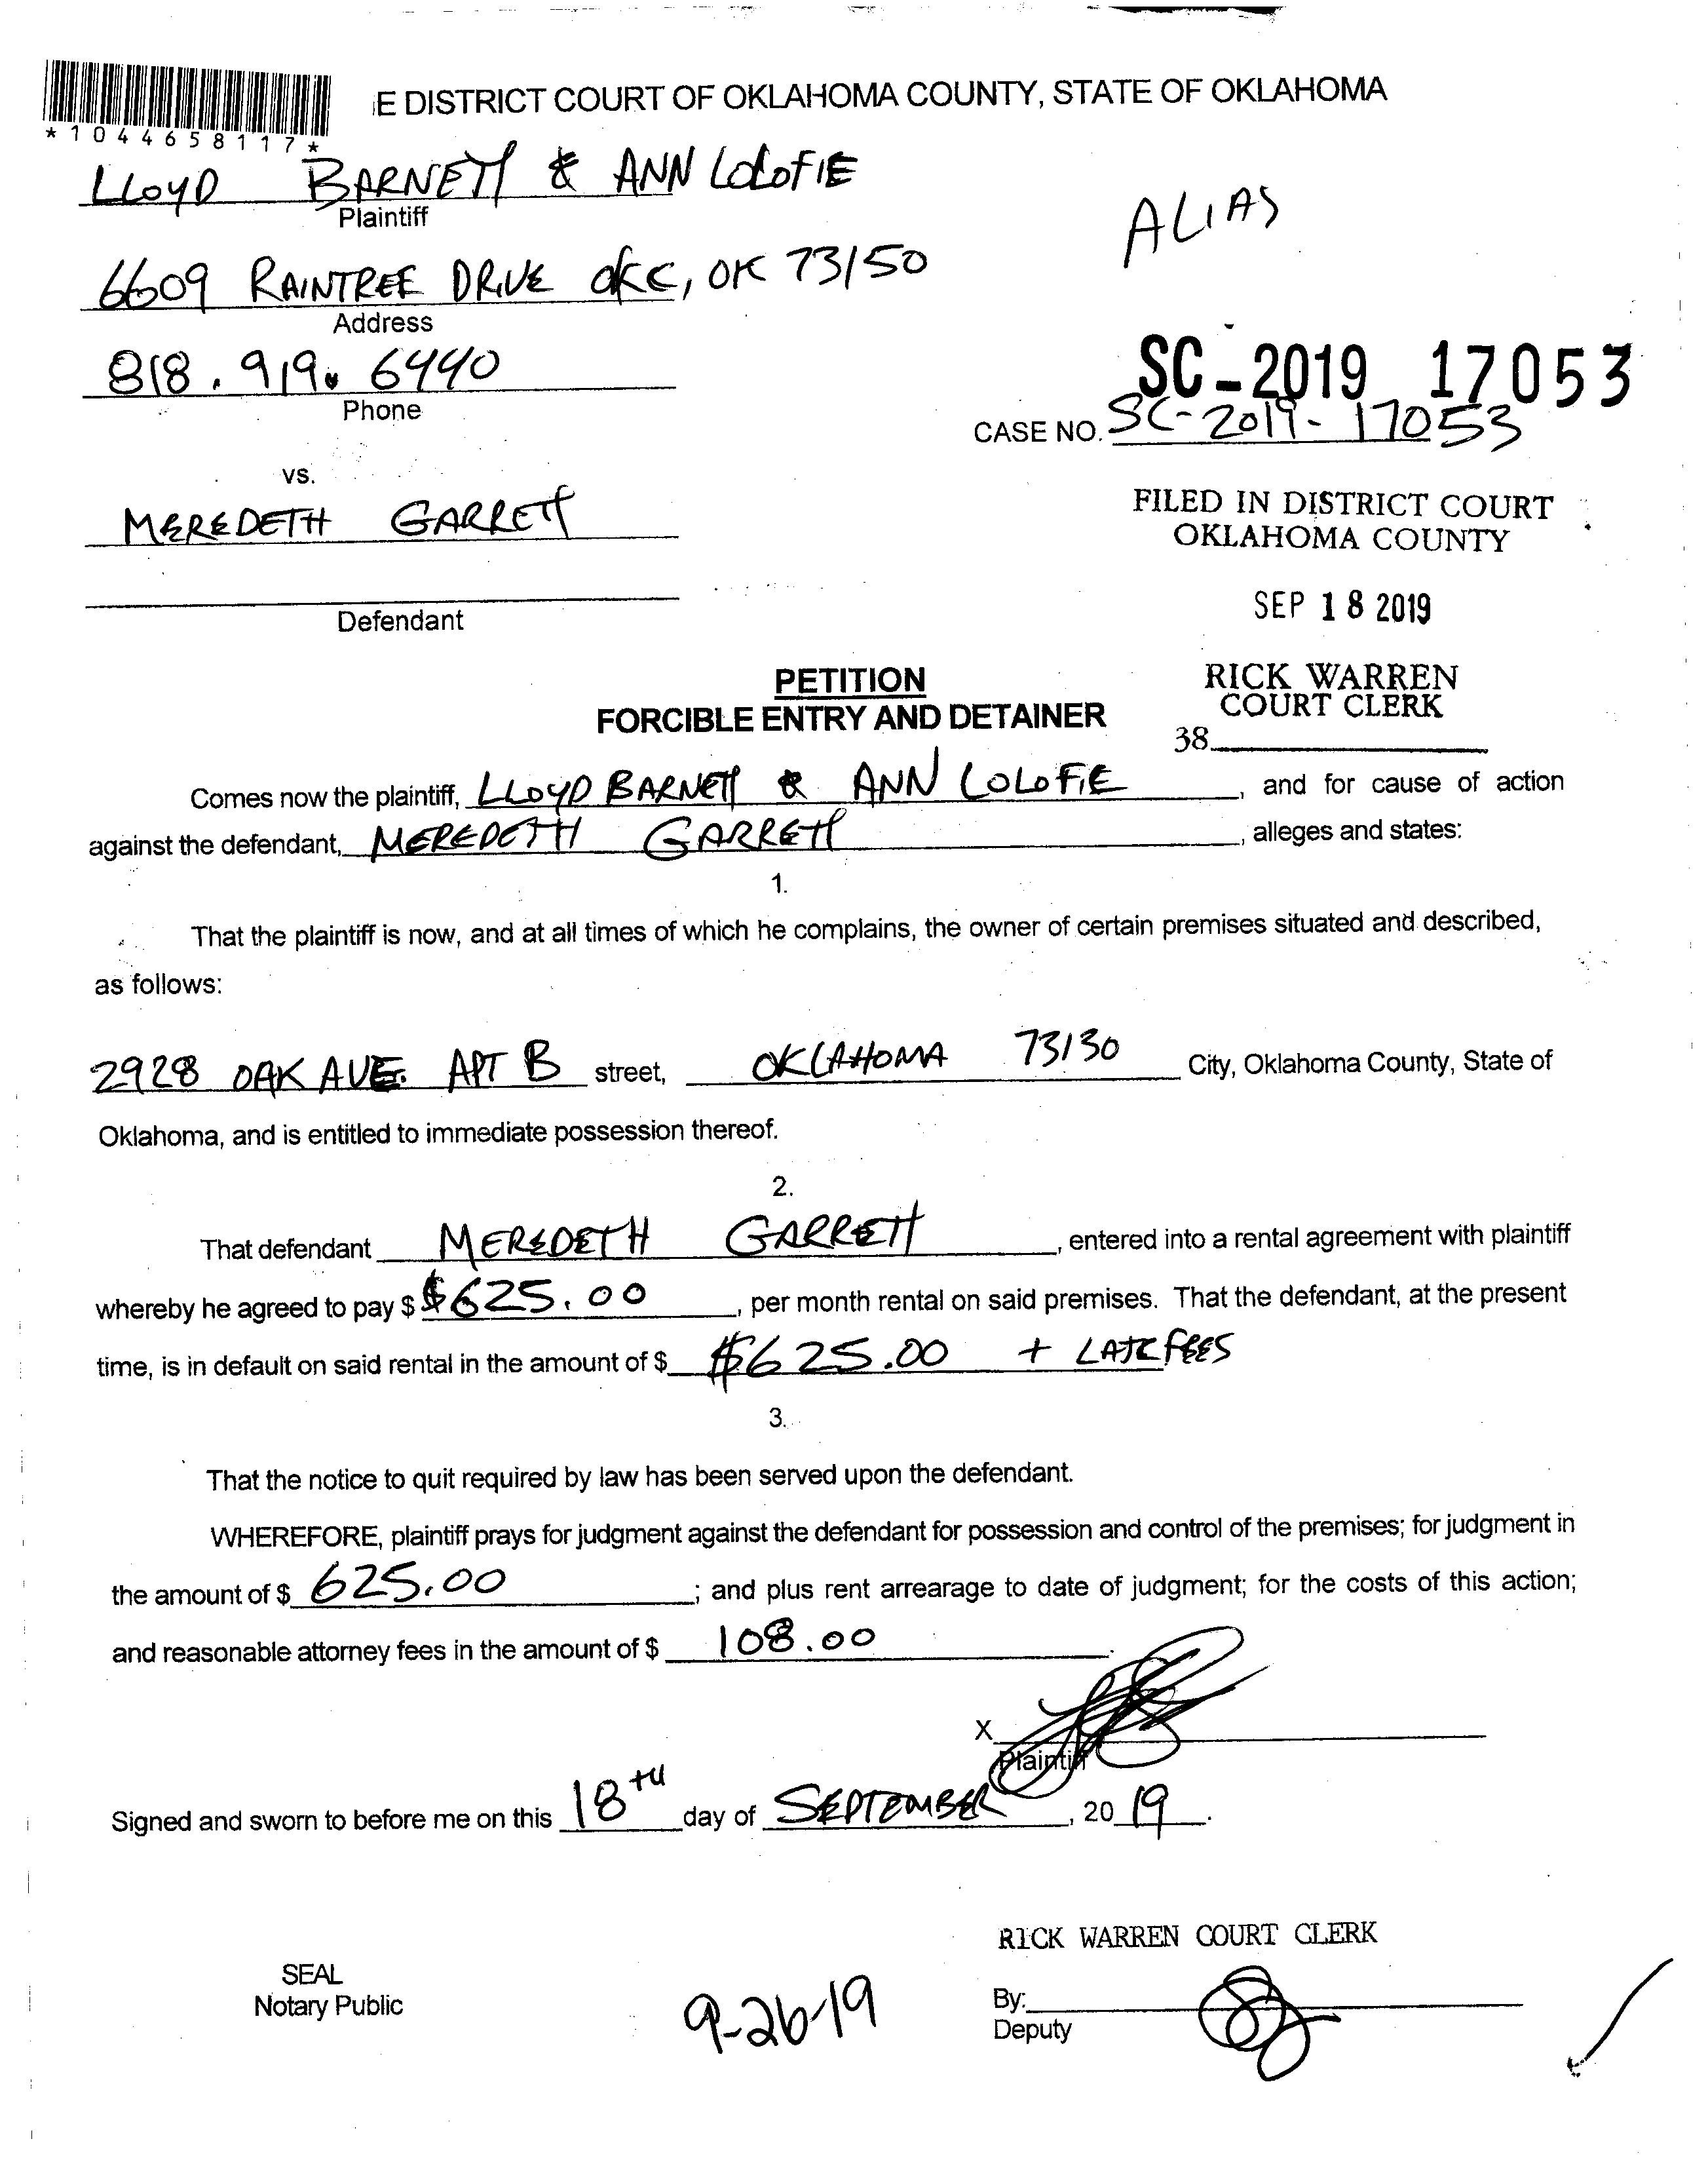 E DISTRICT COURT OF OKLAHOMA COUNTY, STATE OF OKLAHOMA
*1044658117*
LLOYD BARNETT & ANN LOLOFIE
Plaintiff
ALIAS
6609 RAINTREE DRIVE OKC, OK 73150
Address
818.919.6440
Phone
SC-2019 17053
CASE NO. SC-2019-17053
vs.
MEREDETH GARRETT
Defendant
FILED IN DISTRICT COURT
OKLAHOMA COUNTY
SEP 18 2019
RICK WARREN
COURT CLERK
38
PETITION
FORCIBLE ENTRY AND DETAINER
Comes now the plaintiff, LLOYD BARNETT & ANN LOLOFIE, and for cause of action
against the defendant, MEREDETH GARRETT, alleges and states:
1.
That the plaintiff is now, and at all times of which he complains, the owner of certain premises situated and described,
as follows:
2928 OAK AVE. APT B street, OKLAHOMA 73130 City, Oklahoma County, State of
Oklahoma, and is entitled to immediate possession thereof.
2.
That defendant MEREDETH GARRETT, entered into a rental agreement with plaintiff
whereby he agreed to pay $ $625.00, per month rental on said premises. That the defendant, at the present
time, is in default on said rental in the amount of $ $625.00 + LATE FEES
3.
That the notice to quit required by law has been served upon the defendant.
WHEREFORE, plaintiff prays for judgment against the defendant for possession and control of the premises; for judgment in
the amount of $ 625.00; and plus rent arrearage to date of judgment; for the costs of this action;
and reasonable attorney fees in the amount of $ 108.00.
X
Plaintiff
Signed and sworn to before me on this 18TH day of SEPTEMBER, 2019.
RICK WARREN COURT CLERK
SEAL
Notary Public
9-26-19
By:
Deputy